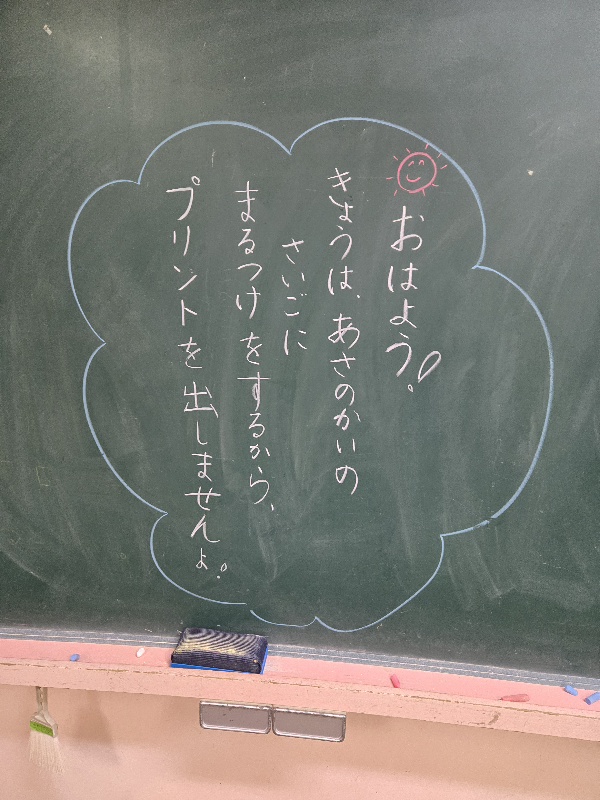 おはよう!
きょうは、あさのかいの
さいごに
まるつけをするから、
プリントを出しませんよ。